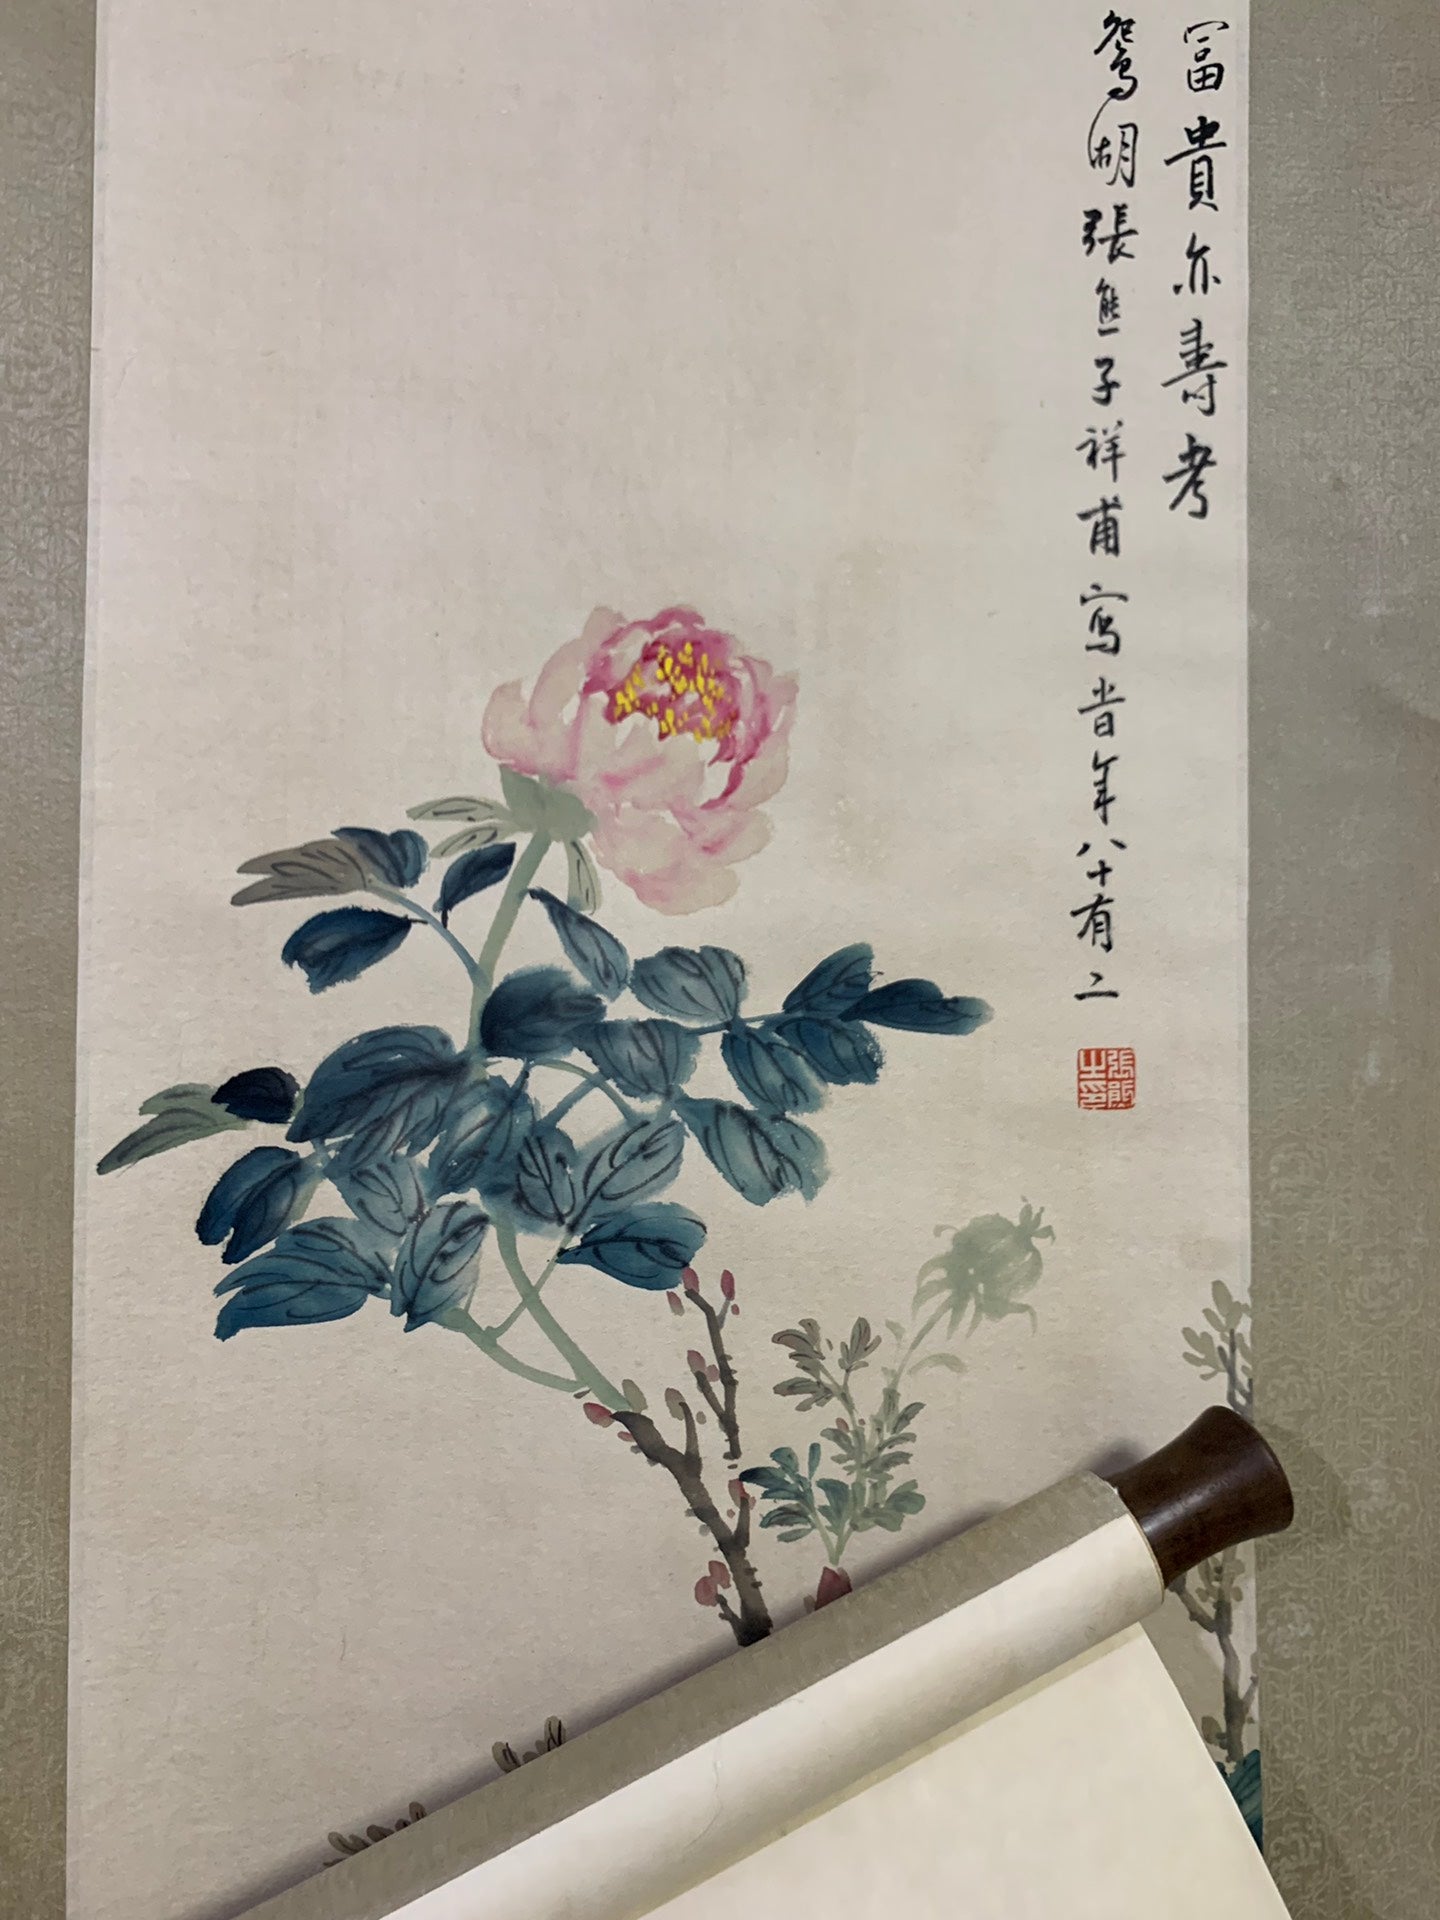 富貴亦壽考
鴛湖張熊子祥甫寫皆年八十有二
張熊之印